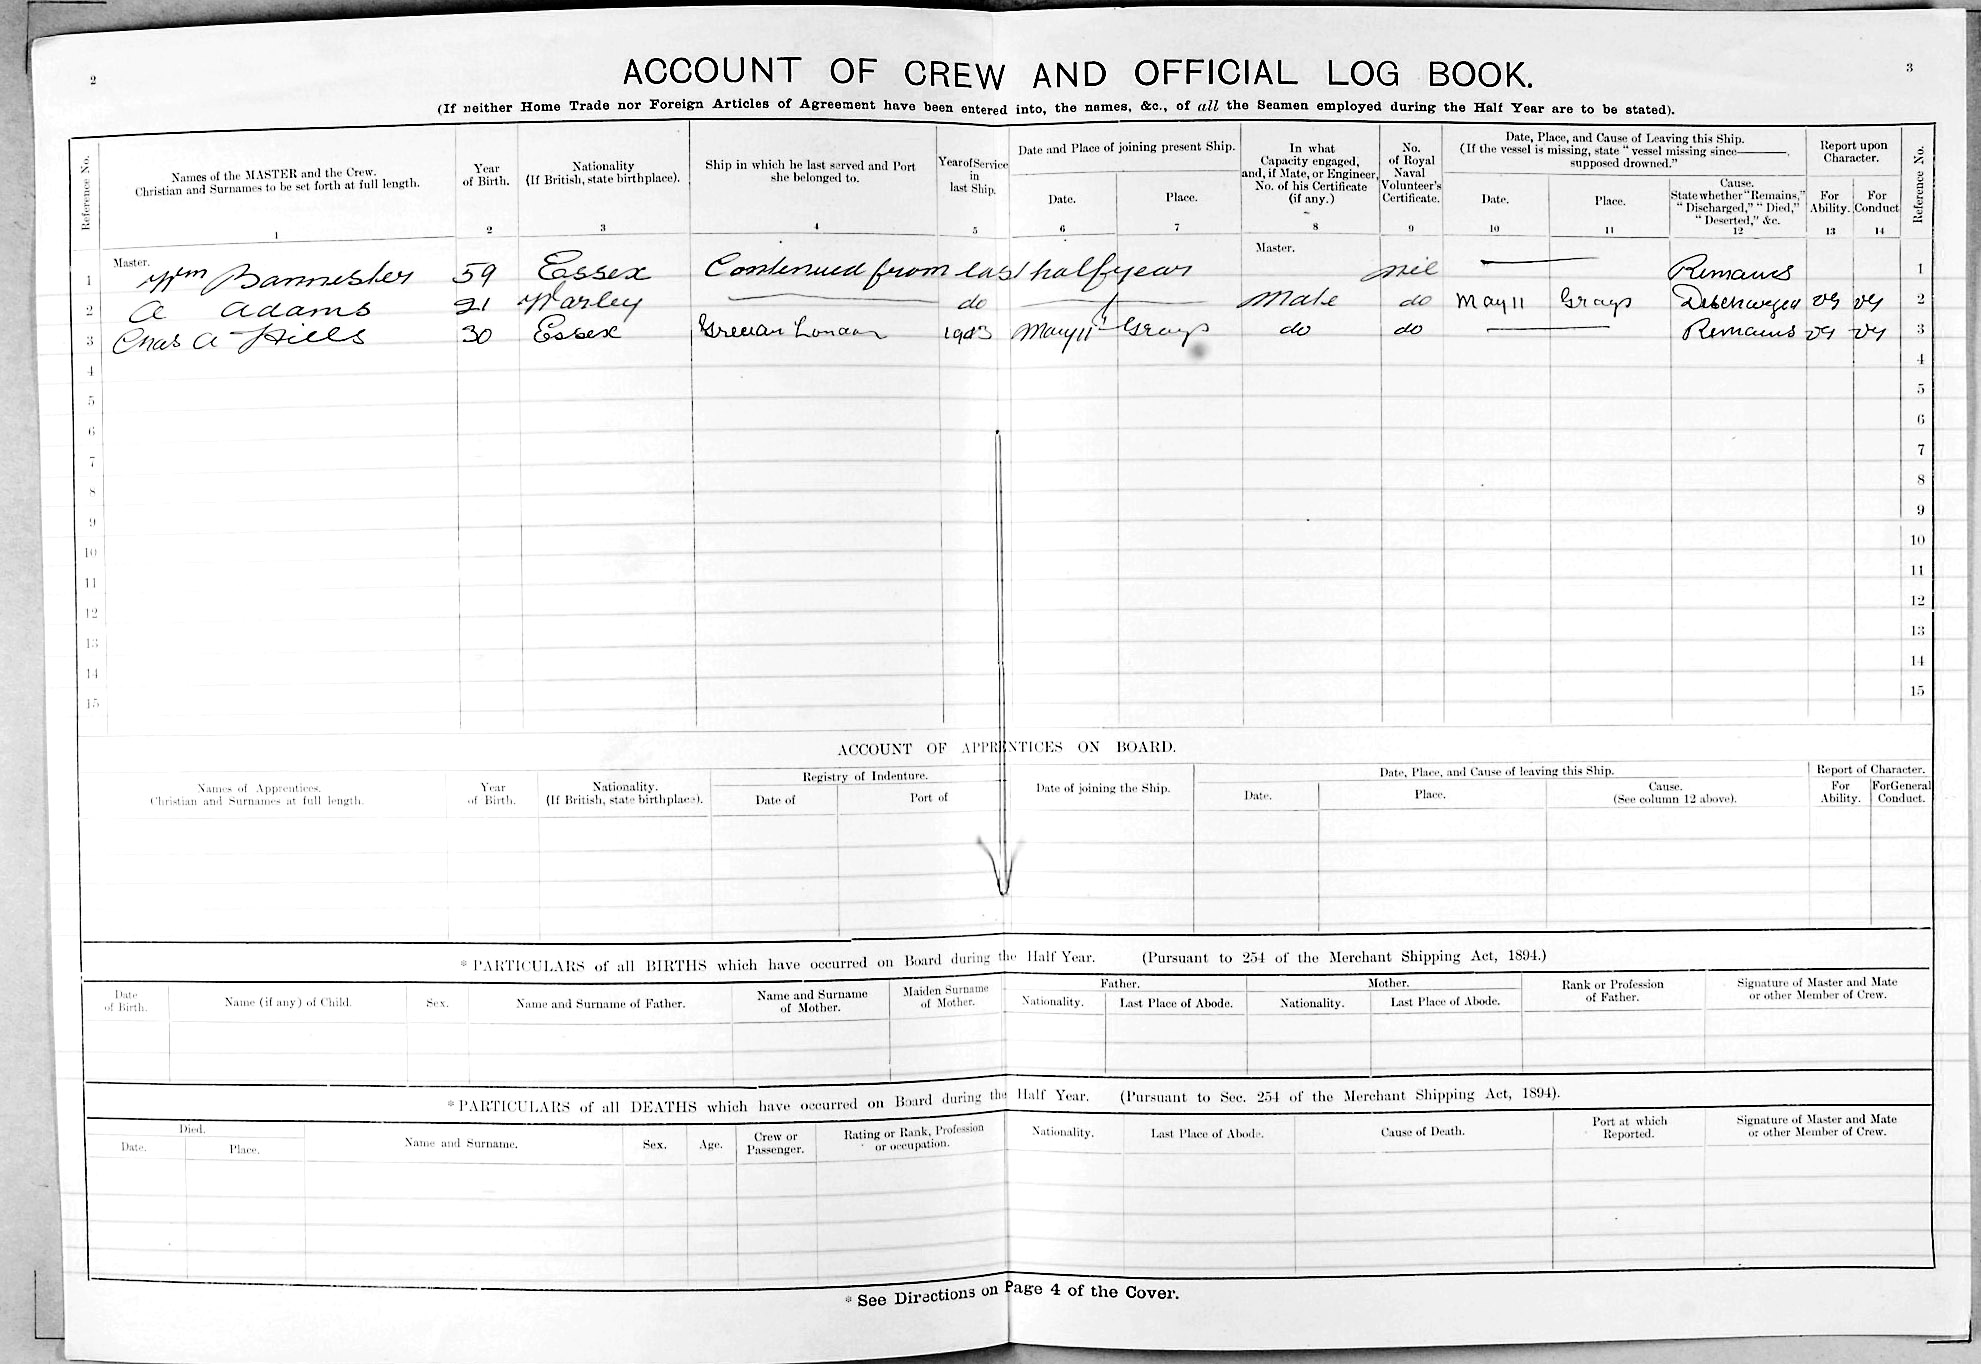 2
3
ACCOUNT OF CREW AND OFFICIAL LOG BOOK.
(If neither Home Trade nor Foreign Articles of Agreement have been entered into, the names, &c., of all the Seamen employed during the Half Year are to be stated).
Reference No.
Names of the MASTER and the Crew.
Christian and Surnames to be set forth at full length.
1
Year
of Birth.
2
Nationality
(If British, state birthplace).
3
Ship in which he last served and Port
she belonged to.
4
Year of Service
in
last Ship.
5
Date and Place of joining present Ship.
Date.
6
Place.
7
In what
Capacity engaged,
and, if Mate, or Engineer,
No. of his Certificate
(if any.)
8
No.
of Royal
Naval
Volunteer's
Certificate.
9
Date, Place, and Cause of Leaving this Ship.
(If the vessel is missing, state "vessel missing since———,
supposed drowned."
Date.
10
Place.
11
Cause.
State whether "Remains,"
"Discharged," "Died,"
"Deserted," &c.
12
Report upon
Character.
For
Ability.
13
For
Conduct
14
Reference No.
Master.
Master.
1 Wm Bannester 59 Essex Continued from last half year nil Remains 1
2 A Adams 21 Warley do Mate do May 11 Grays Discharged vg vg 2
3 Chas A Hills 30 Essex London 1903 May 11 Grays do do Remains vg vg 3
4 4
5 5
6 6
7 7
8 8
9 9
10 10
11 11
12 12
13 13
14 14
15 15
ACCOUNT OF APPRENTICES ON BOARD.
Names of Apprentices.
Christian and Surnames at full length.
Year
of Birth.
Nationality.
(If British, state birthplace).
Registry of Indenture.
Date of
Port of
Date of joining the Ship.
Date, Place, and Cause of leaving this Ship.
Date.
Place.
Cause.
(See column 12 above).
Report of Character.
For
Ability.
For General
Conduct.
* PARTICULARS of all BIRTHS which have occurred on Board during the Half Year. (Pursuant to 254 of the Merchant Shipping Act, 1894.)
Date
of Birth.
Name (if any) of Child.
Sex.
Name and Surname of Father.
Name and Surname
of Mother.
Maiden Surname
of Mother.
Father.
Nationality.
Last Place of Abode.
Mother.
Nationality.
Last Place of Abode.
Rank or Profession
of Father.
Signature of Master and Mate
or other Member of Crew.
* PARTICULARS of all DEATHS which have occurred on Board during the Half Year. (Pursuant to Sec. 254 of the Merchant Shipping Act, 1894).
Died.
Date.
Place.
Name and Surname.
Sex.
Age.
Crew or
Passenger.
Rating or Rank, Profession
or occupation.
Nationality.
Last Place of Abode.
Cause of Death.
Port at which
Reported.
Signature of Master and Mate
or other Member of Crew.
* See Directions on Page 4 of the Cover.